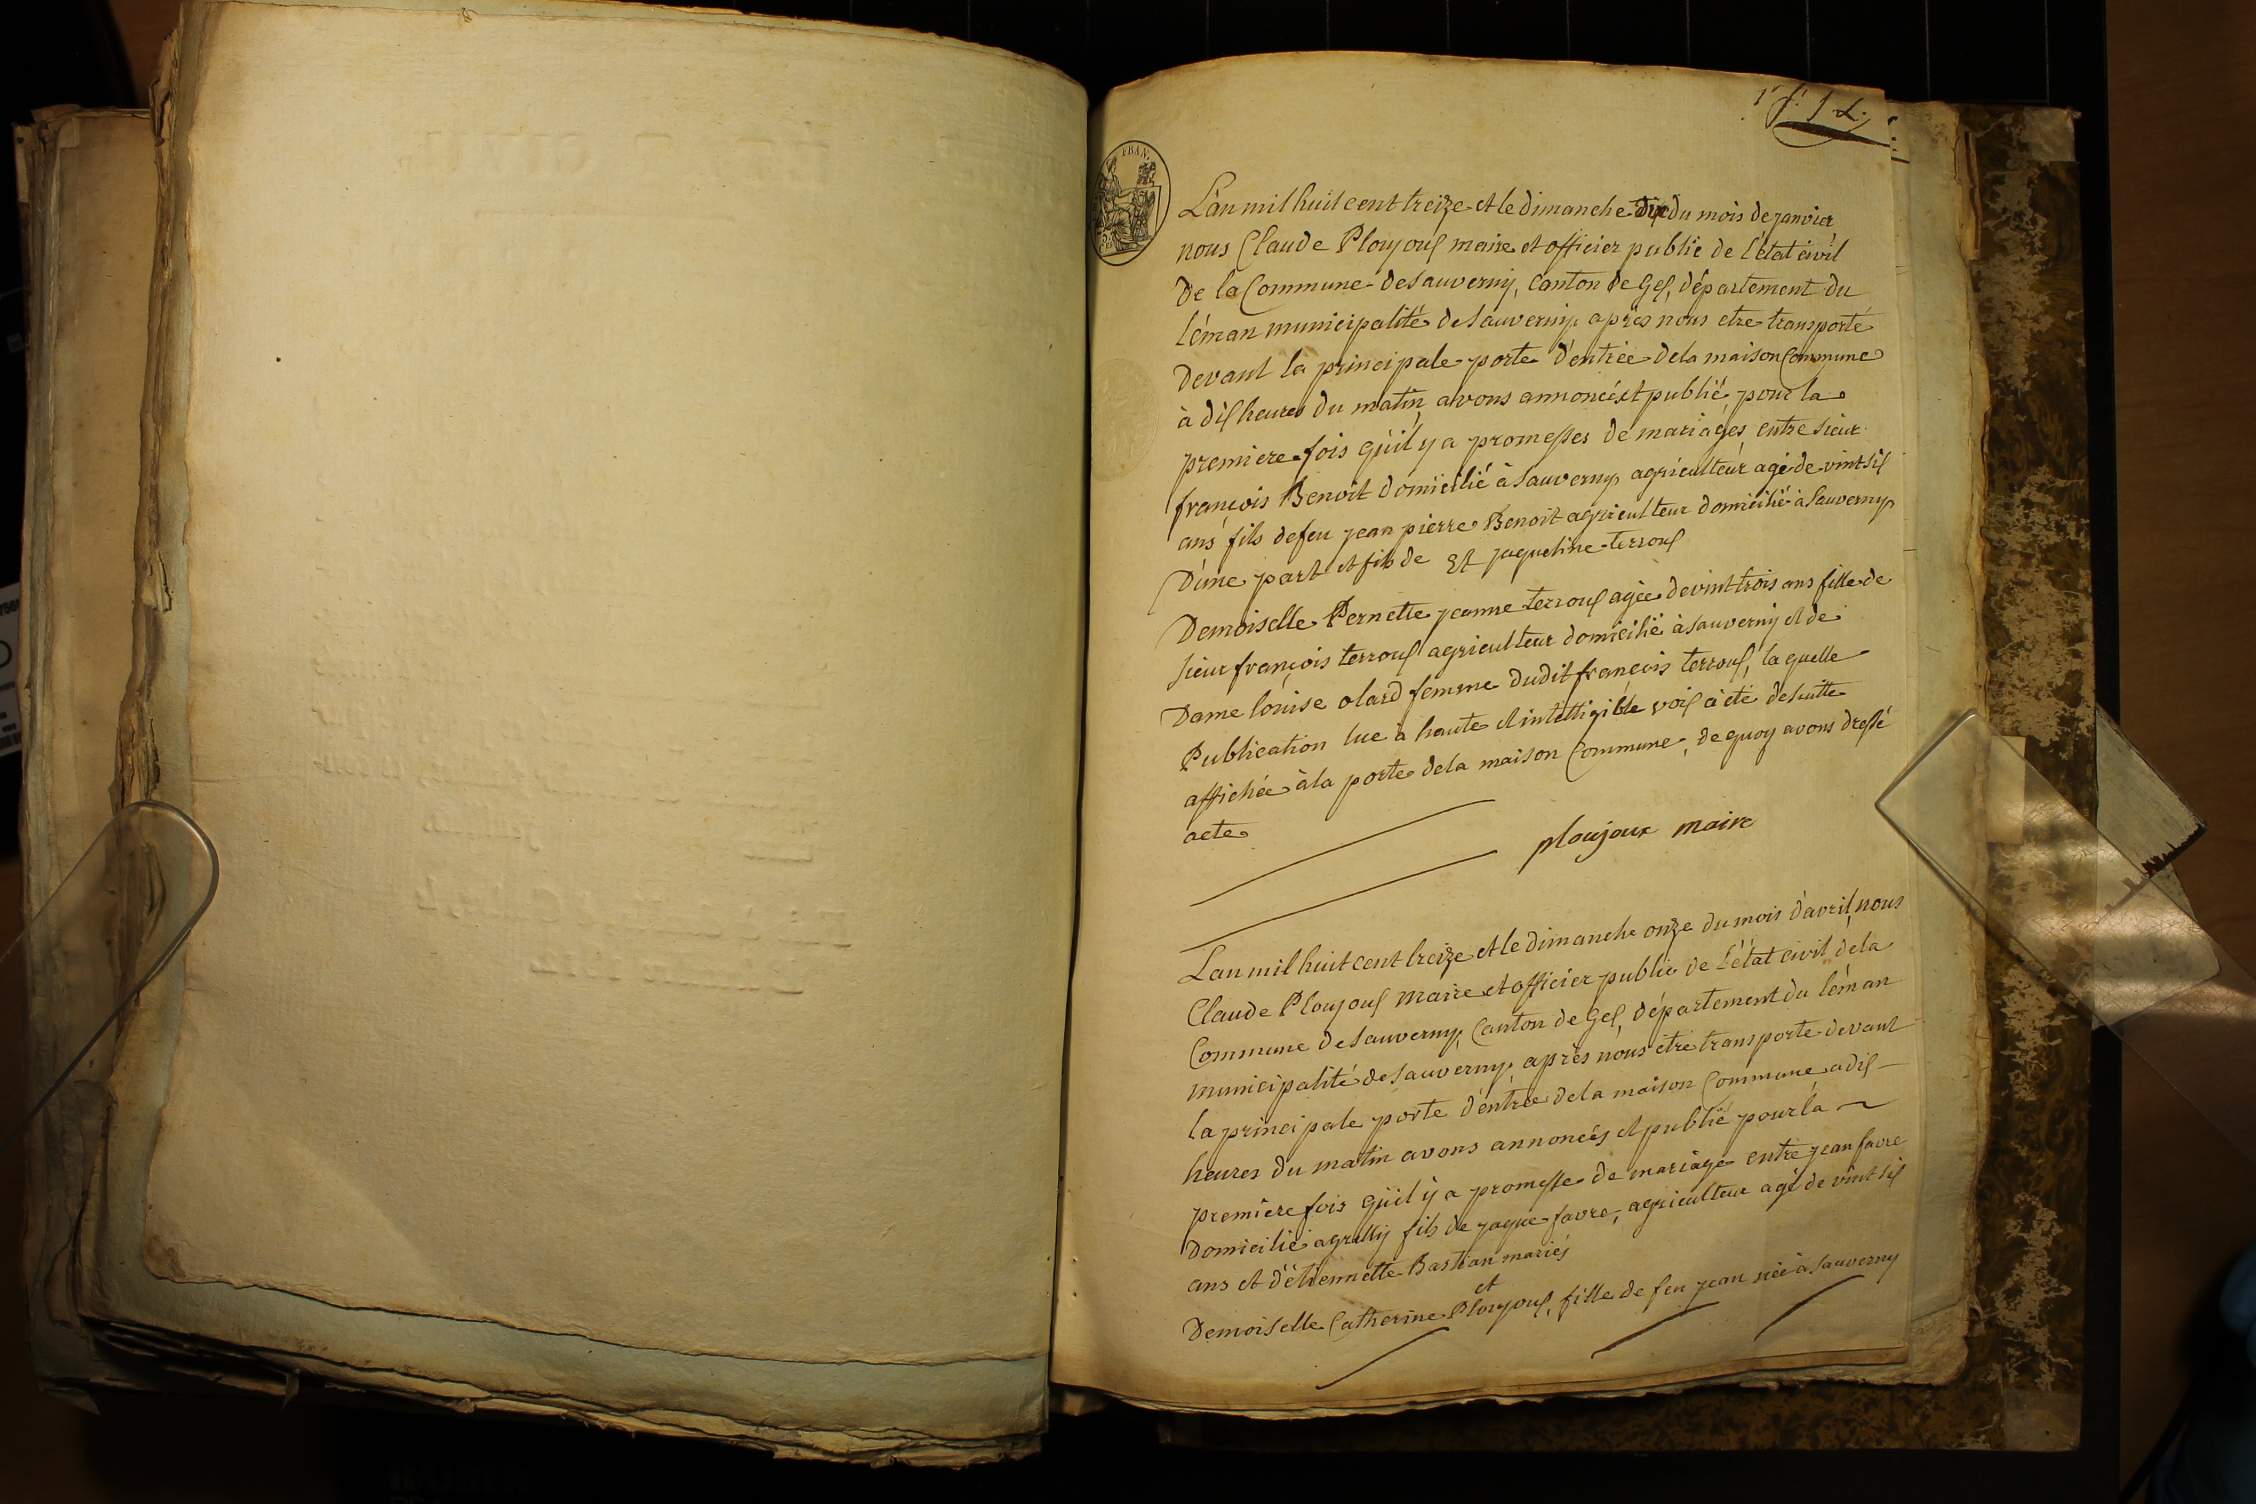 L'an mil huit cent treize et le dimanche dix du mois de janvier
nous Claude Ploujoux maire et officier public de L'état civil
De la Commune de Sauverny, Canton de Gex, département du
léman municipalité de Sauverny, après nous etre transporté
Devant la principale porte D'entrée de la maison Commune
à dix heures du matin, avons annoncé et publié pour la
premiere fois qu'il y a promesses de mariages entre sieur
françois Benoit domicilié à Sauverny agriculteur agé de vint six
ans fils de feu jean pierre Benoit agriculteur domicilié à Sauverny
D'une part et fils de Et jaqueline terroux
Demoiselle Pernette jeanne terroux agée de vint trois ans fille de
sieur françois terroux agriculteur domicilié à Sauverny et de
Dame louise olard femme dudit françois terroux, la quelle
Publication lue à haute et intelligible voix à été de suitte
affichée à la porte de la maison Commune, de quoy avons dressé
acte
ploujoux maire
L'an mil huit cent treize et le dimanche onze du mois d'avril, nous
Claude Ploujoux Maire et officier public de L'état civil de la
Commune de Sauverny, Canton de Gex, Département du léman
municipalité de Sauverny, après nous etre transporté devant
la principale porte d'éntrée de la maison Commune a dix
heures du matin avons annoncés et publié pour la
premiere fois qu'il y a promesse de mariage entre jean favre
Domicilié a grilly fils de jaque favre, agriculteur agé de vint six
ans et d'étiennette Bastian mariés
et
Demoiselle Catherine Ploujoux, fille de feu jean née à Sauverny